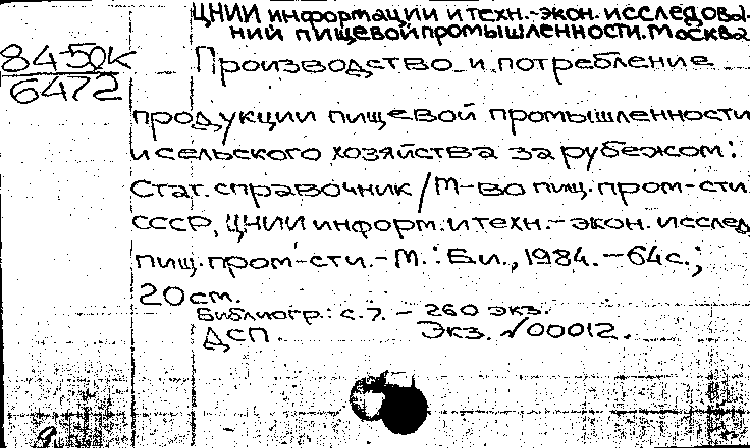 ЦНИИ информации и техн.-экон. исследова-
ний пищевой промышленности. Москва
84-50к
6472
Производство и потребление
продукции пищевой промышленности
и сельского хозяйства за рубежом:
Стат. справочник / М-во пищ. пром-сти
СССР, ЦНИИ информ. и техн.-экон. исслед.
пищ. пром-сти. - М.: Б.и., 1984. - 64 с.;
20 cm.
Библиогр.: с. 7. - 260 экз.
ДСП. Экз. №00012.